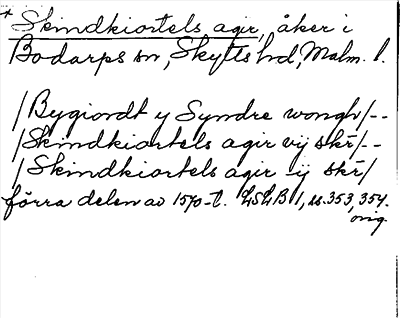 * Skindkiortels agir, åker i
Bodarps sn, Skytts hd, Malm. l.
/Bygiordt y Syndre wongh/--
/Skindkiortels agir vij skr̃/--
/Skindkiortels agir ij skr̃/
förra delen av 1570-t. LSLB 1, ss. 353, 354.
orig.